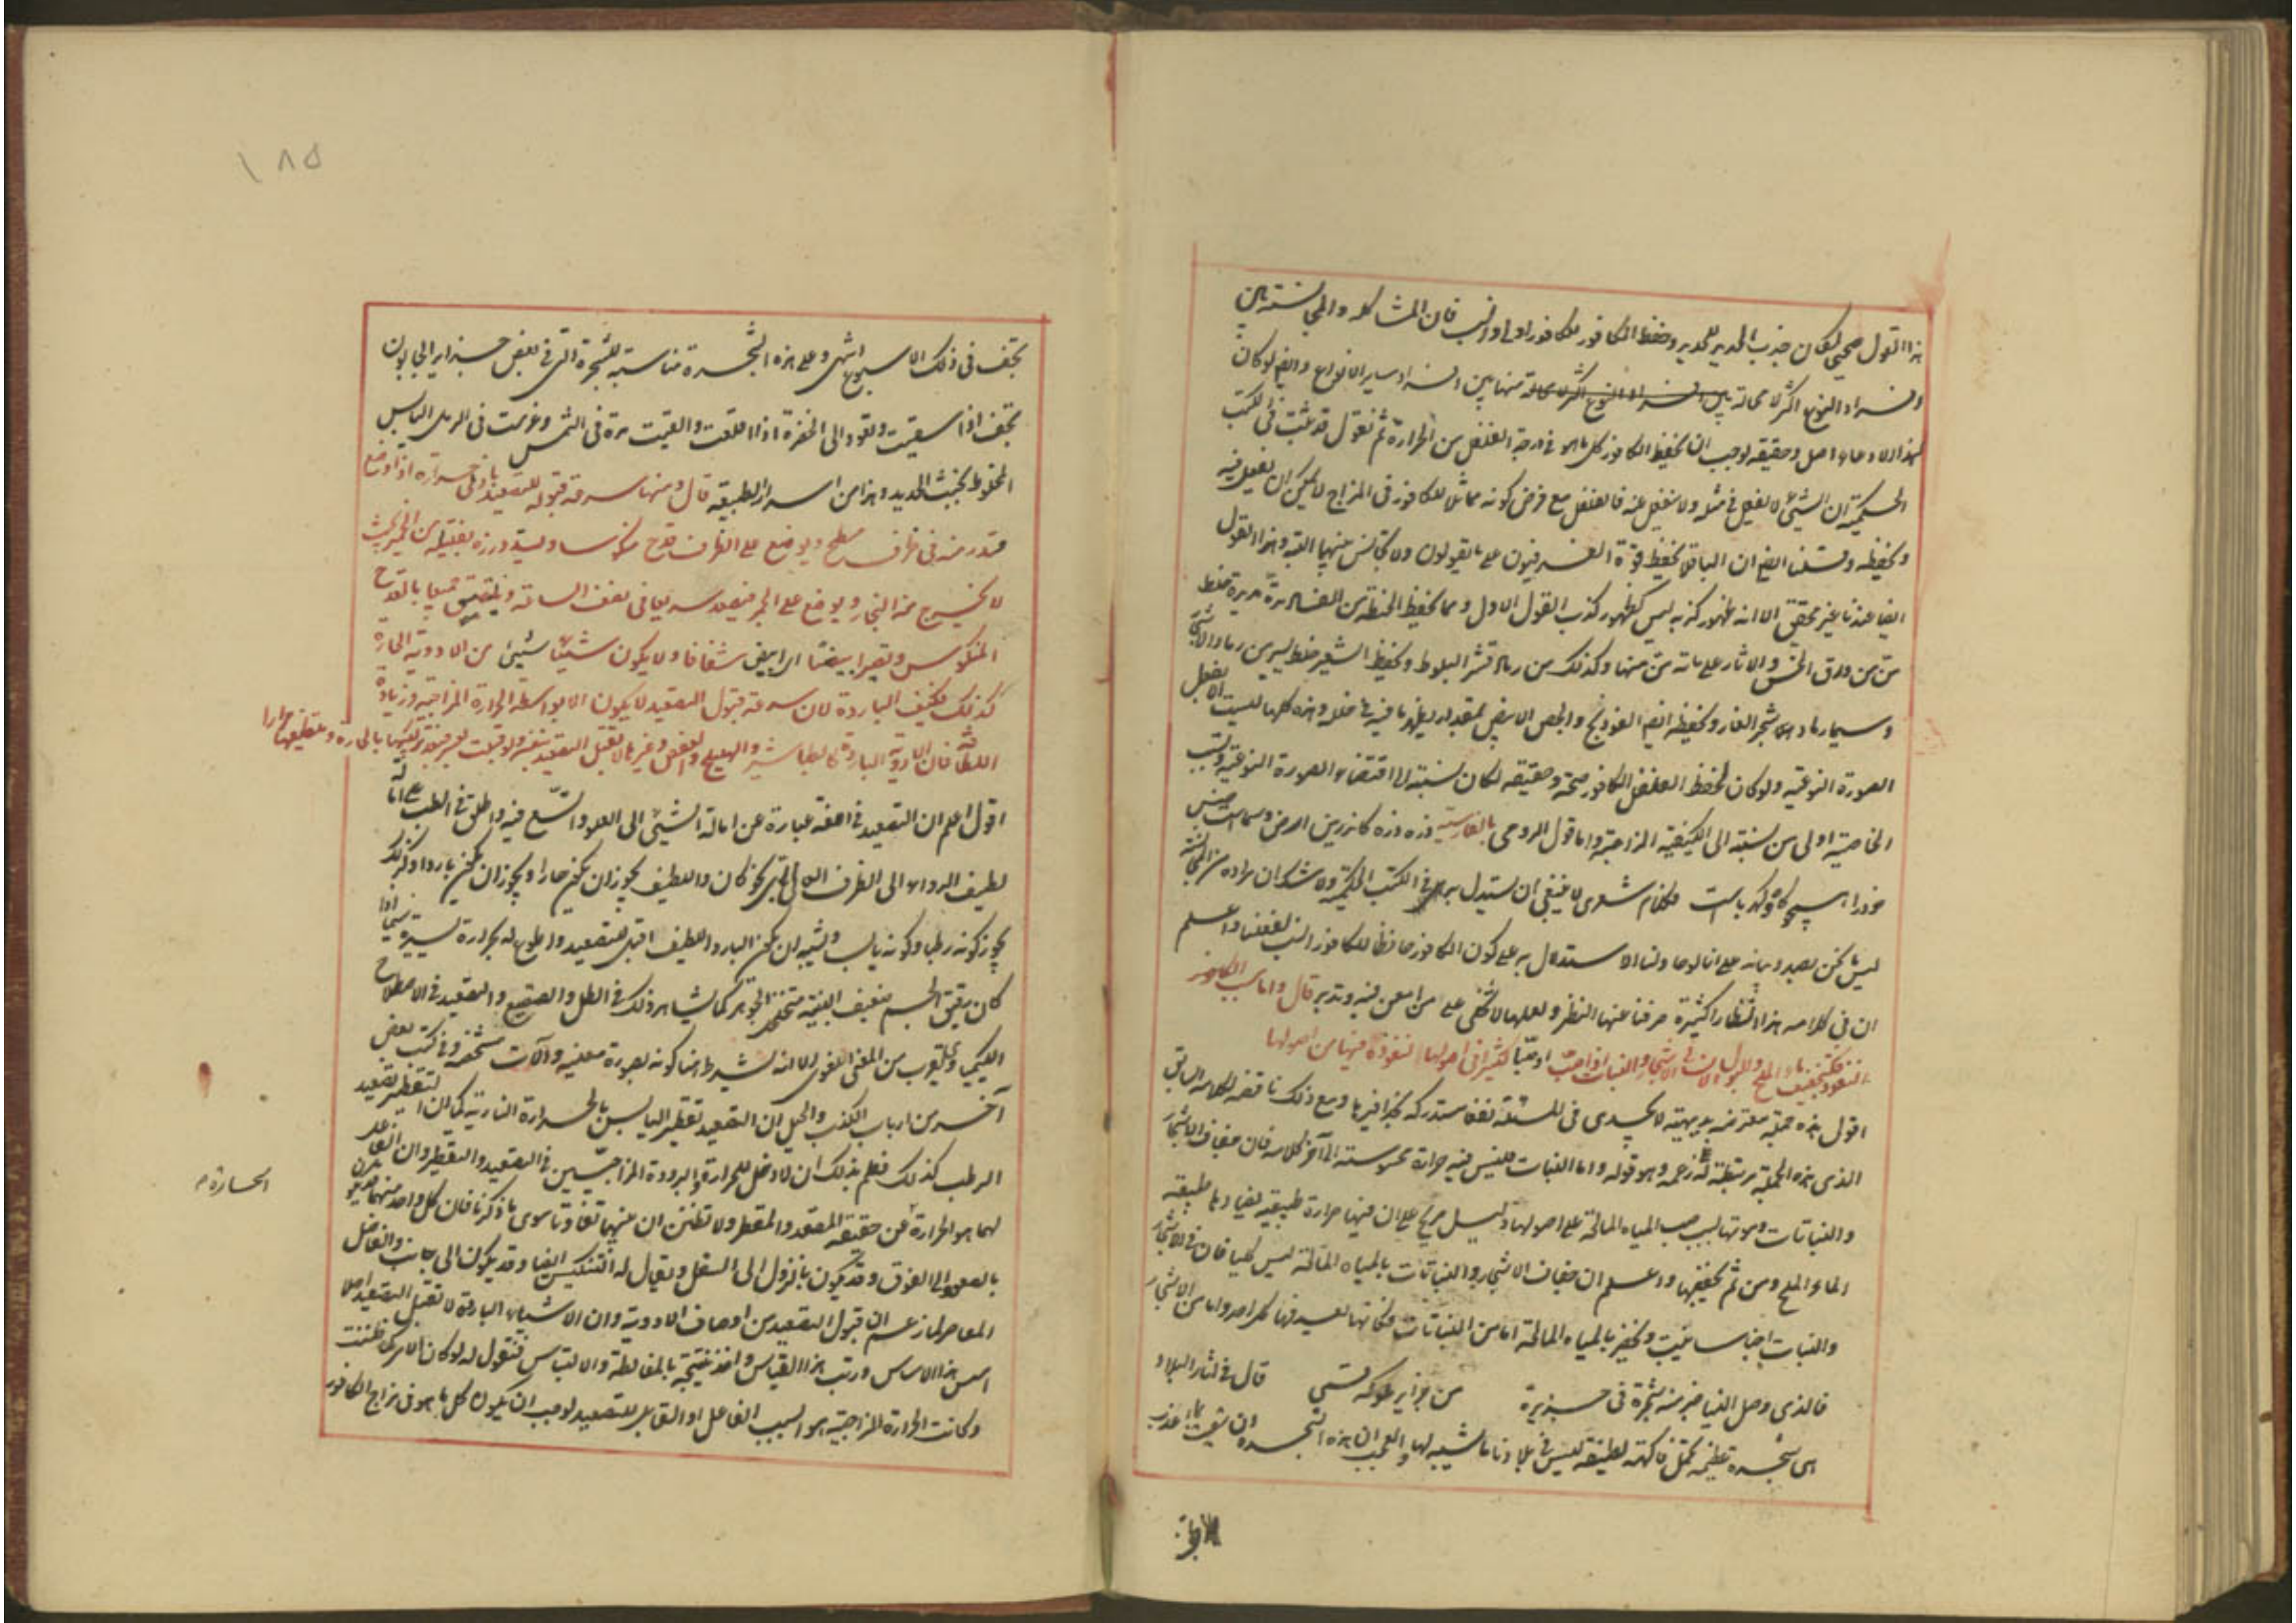 هذا القول صحيحا لكان جذب الحديد للحديد وحفظ الكافور للكافور اولى وانسب فان المشاكلة والمجانسة بين
افراد النوع اكثر لا محالة بين افراد النوع اكثر لا محالة منها بين افراد سایر الانواع وايضا لو كان
لهذا الادعاء اصل وحقيقة لوجب ان يحفظ الكافور كل ما هو في درجة الفلفل من الحرارة ثم نقول قد ثبت في الكتب
الحكمية ان الشيئ لا يفعل في مثله ولا ينفعل عنه فالفلفل مع فرض كونه مماثلا للكافور في المزاج لا يمكن ان يفعل فيه
ويحفظه وقد قلنا ايضا ان الباقلا يحفظ قوة الفرفيون على ما يقولون ولا تجانس بينهما البتة وهذا القول
ايضا عندنا غير محقق الا انه ظهور كذبه ليس كظهور كذب القول الاول ومما يحفظ الحنطة من الفساد مدة مديدة خلط
من ورق الخس والاثار على مائة من منها وكذلك من رماد قشر البلوط ويحفظ الشعير خلط يسير من رماد الاشجار
وسيما رماد شجر الغار ويحفظه ايضا الفودنج والجص الابيض بمقدار يظهر ما فيه في خلله وهذه كلها ليست الا بفعل
الصورة النوعية ولو كان لحفظ الفلفل الكافور صحة وحقيقة لكان نسبته الى اقتضاء الصورة النوعية ونسب
الخاصية اولى من نسبته الى الكيفية المزاجية واما قول الرومي بالفارسية ذره ذره كاندرين ارض وسماست جنس
خود را همچو كاه و كهرباست فكلام شعرى لا ينبغي ان يستدل به في الكتب الحكمية ولا شك ان مراده من المجانسة
ليس ما نحن بصدد بيانه على انا لو حاولنا الاستدلال به على كون الكافور حافظا للكافور انسب لفعلنا واعلم
ان في كلامه هذا انظارا كثيرة صرفنا عنها النظر ولعلها لا تخفى على من امعن فيه وتدبر قال واما سبب الكافور
النفوذ فكتجفيف ماء الملح والبول الانساني الاشجار والنبات اذا صب او صبا كثيرا في اصولها لنفوذه فيها من اصولها
اقول هذه جملة معترضة بديهية لا يجدى في المسئلة نفعا مستدركة بحذافيرها ومع ذلك ناقضه لكلامه السابق
الذى هذه الجملة مرتبطة به في زعمه وهو قوله واما النبات فليس فيه حرارة محسوسة الى آخر كلامه فان جفاف الاشجار
والنباتات وموتها بسبب صب المياه المالحة على اصولها دليل صريح على ان فيها حرارة طبيعية يضادها طبيعة
الماء المالح ومن ثم يجففها واعلم ان جفاف الاشجار والنباتات بالمياه المالحة ليس كليا فان في الاشجار
والنبات اجناسا ينبت ويخضر بالمياه المالحة اما من النباتات فكانها لعيد فها كل احد واما من الاشجار
فالذى وصل الينا خبره منه شجرة في جزيرة من جزاير ملوكه تسمى قال في آثار البلاد
هى شجرة عظيمة تحمل فاكهة لطيفة ليس في بلادنا ما شبيه لها والعجب ان هذه الشجرة ان سقيت بماء عذب
يجف في ذلك الاسبوع انتهى وعلى هذه الشجرة مناسبة للشجرة التى في بعض جزاير الجابون
تجف اذا سقيت وتعود الى الخضرة اذا اقلعت والقيت مدة في الشمس وغرست في الرمل اليابس
المخلوط بخبث الحديد وهذا من اسرار الطبيعة قال ومنها سرعة قبوله للتصعيد بادنى حرارة اذا وضع
قدر منه في ظرف مسطح ويوضع على الظرف قدح منكوسا ويسد ورزه بفتيلة من الخمير بحيث
لا يخرج منه البخار ويوضع على الجمر فيصعد سريعا في نصف الساعة ويلتصق جميعا بالقدح
المنكوس وتصير ابيضا ابرابيض شفافا ولا يكون شيئا شيئ من الادوية الحارة
كذلك فكيف الباردة لان سرعة قبول التصعيد لا يكون الا بواسطة الحرارة المزاجية وزيادة
اللطافة فان الادوية الباردة كالطباشير والهليلج والعفص وغيرها لا تقبل التصعيد بتغير ولو قبلت فبتركيبها بالحارة وتغطيتها مرارا
اقول اعلم ان التصعيد في اللغة عبارة عن امالة الشيئ الى العلو واتسع فيه واطلق في الطب على امالة
لطيف الدواء الى الطرف العالى باى نحو كان واللطيف يجوز ان يكون حارا ويجوز ان يكون باردا وكذلك
يجوز كونه رطبا وكونه يابسا ويشبه ان يكون البارد اللطيف اقبل للتصعيد واطوع له بحرارة يسيرة سيما اذا
كان رقيق الجسم ضعيف البنية متخلخل الجوهر كما يشاهد ذلك في الطل والصقيع والتصعيد في الاصطلاح
الكيمياوى يقرب من المعنى اللغوى الا انه يشترط هنا كونه بصورة معينة وآلات مشخصة وفي كتب بعض
آخر من ارباب الكذب والحيل ان التصعيد تقطير اليابس بالحرارة النارية كما ان التقطير تصعيد
الرطب كذلك فعلم بذلك ان لا دخل للحرارة والبرودة المزاجيتين في التصعيد والتقطير وان الفاعل
لهما هو الحرارة عن حقيقة المصعد والمقطر ولا تظنن ان بينهما تفاوتا سوى ما ذكرنا فان كل واحد منهما قد يكون
بالصعود الى الفوق وقد يكون بالنزول الى السفل ويقال له التنكيس ايضا وقد يكون الى جانب والفاضل
المعاصر لما زعم ان قبول التصعيد من اوصاف الادوية وان الاشياء الباردة لا تقبل التصعيد اصلا
اسس هذا الاساس ورتب هذا القياس واخذ نتيجة بالمغالطة والالتباس فنقول له لو كان الامر كما ظننت
وكانت الحرارة المزاجية هو السبب الفاعل او القابل للتصعيد لوجب ان يكون كل ما هو في مزاج الكافور
الحارة م
١٨٥